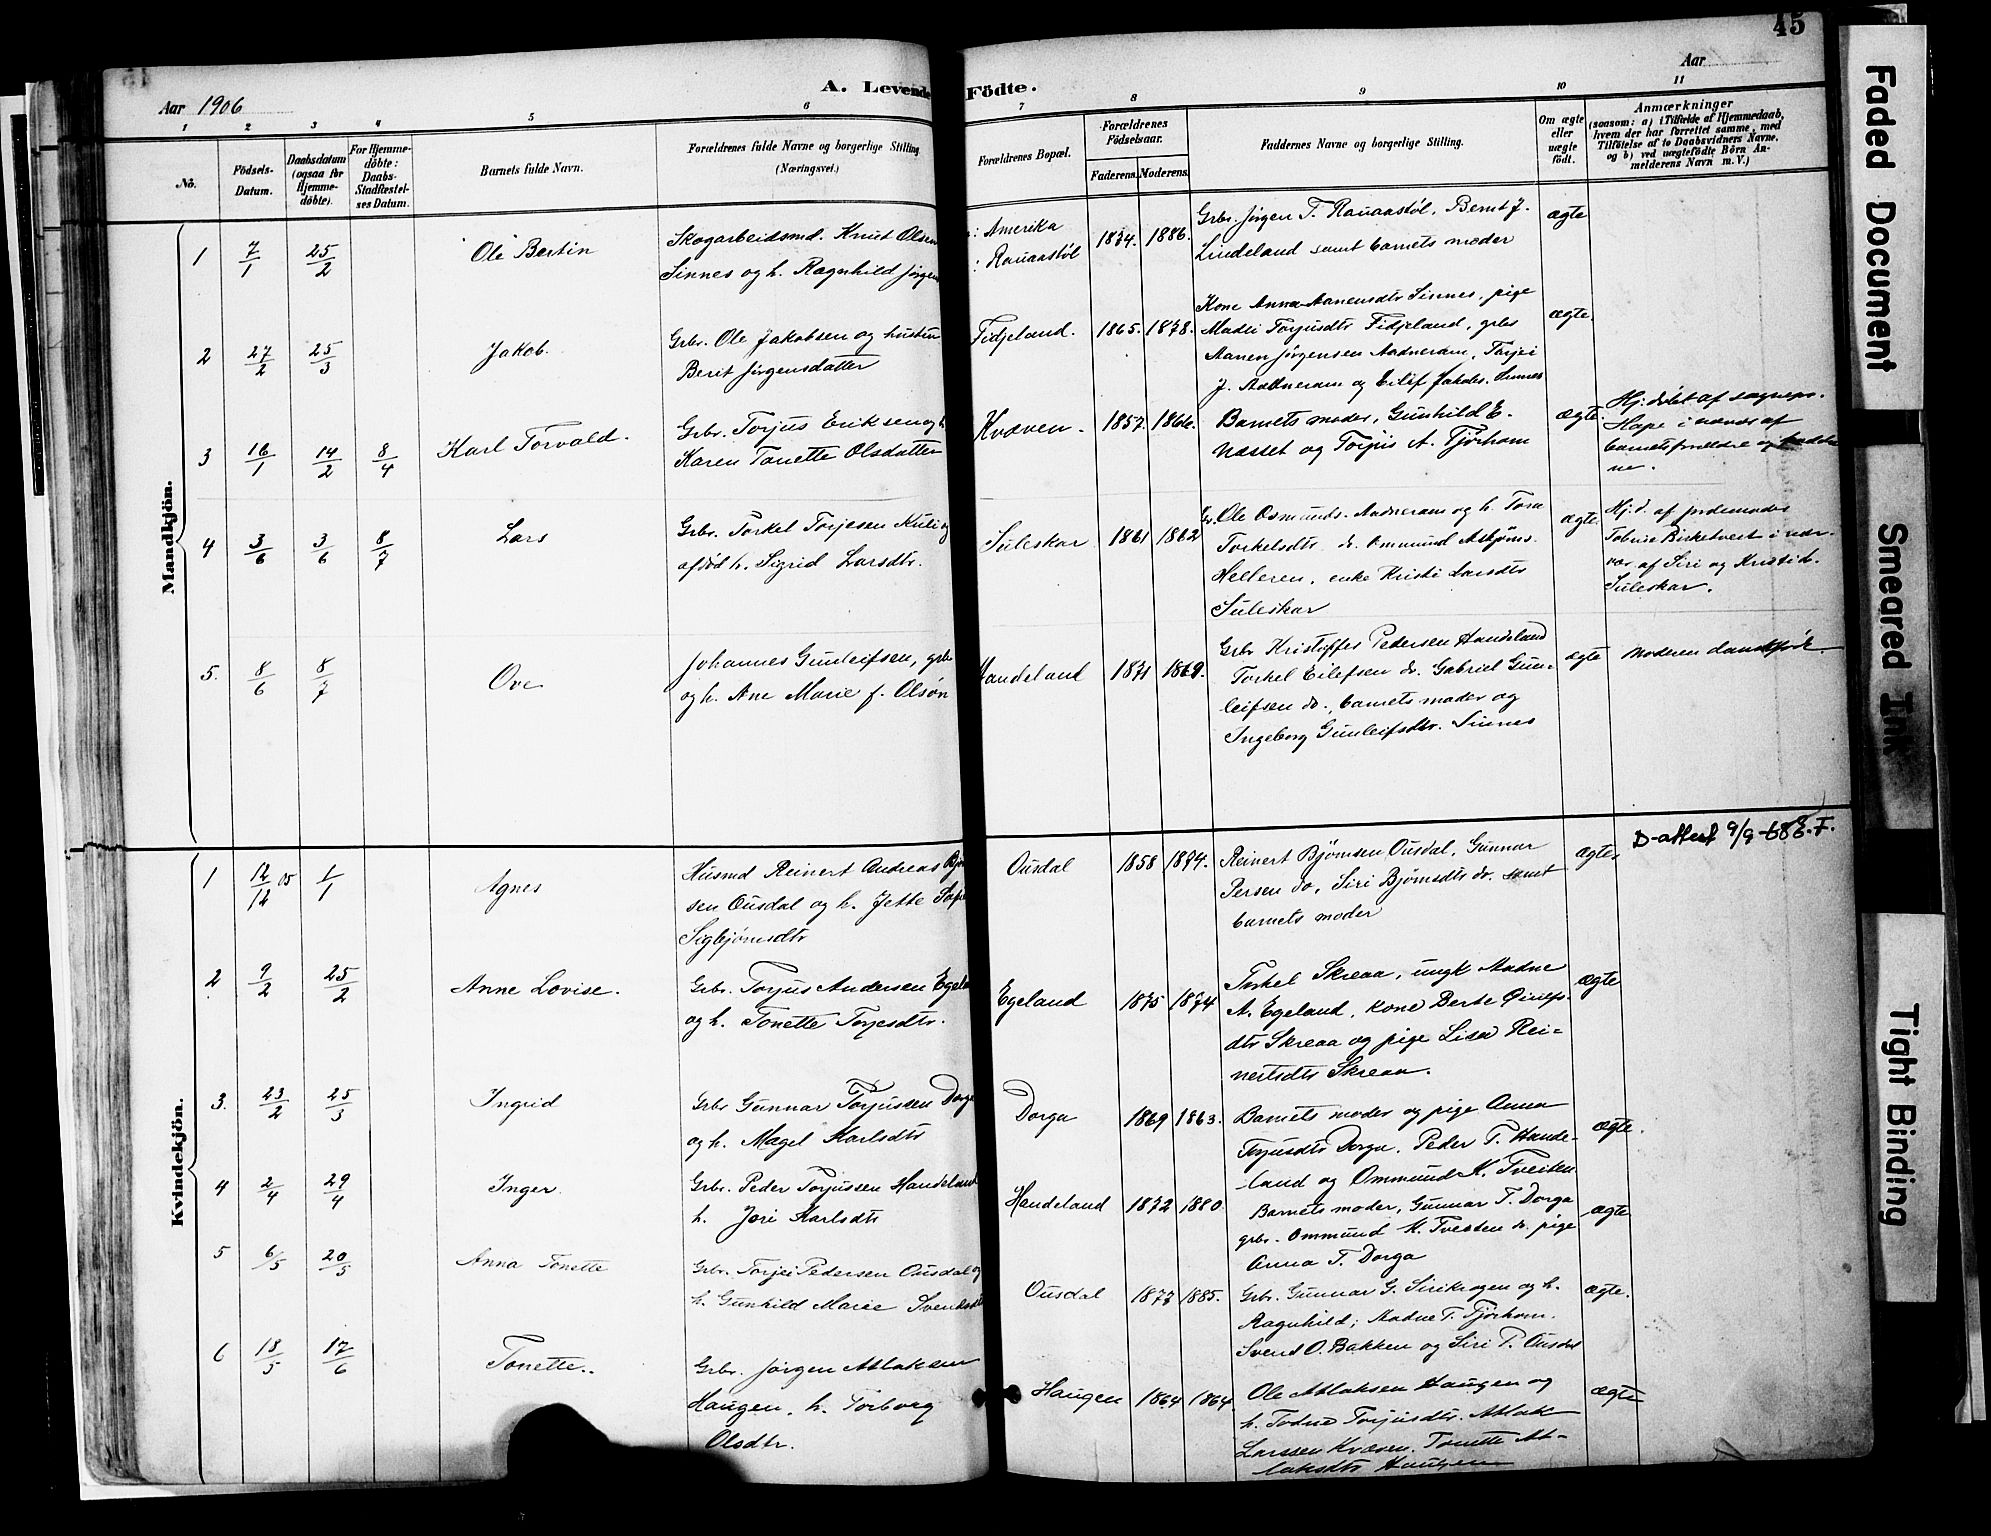 45
Aar 1906
A. Levende Födte.
Aar
1 2 3 4 5 6 7 8 9 10 11
No.
Födsels-Datum.
Daabsdatum (ogsaa for Hjemme-döbte).
For Hjemme-döbte: Daabs-Stadfæstel-ses Datum.
Barnets fulde Navn.
Forældrenes fulde Navne og borgerlige Stilling (Næringsvei.)
Forældrenes Bopæl.
Forældrenes Födselsaar.
Faderens. Moderens.
Faddernes Navne og borgerlige Stilling.
Om ægte eller uægte födt.
Anmærkninger
(saasom: a) i Tilfælde af Hjemmedaab,
hvem der har forrettet samme, med
Tilföielse af to Daabsvidners Navne,
og b) ved uægtefödte Börn An-
melderens Navn m. V.)
Mandkjön.
1 7/1 25/2 Ole Bertin
Skogarbeidsmd. Knut Olsen
Sinnes og h. Ragnhild Jørgens
Amerika
Rauaastøl
1874. 1886.
Grbr. Jørgen T. Rauaastøl, Bernt J.
Lindeland samt barnets moder
ægte
2 27/2 25/3 Jakob.
Grbr. Ole Jakobsen og hustru
Berit Jørgensdatter
Fidjeland. 1865. 1878.
Kone Anna Aanensdtr Sinnes, pige
Madli Torjusdtr Fidjeland, grbr
Aanen Jørgensen Aadneram, Torjei
J. Aadneram og Eilef Jakobs. Sinnes
ægte.
3 16/1 14/2 8/4 Karl Torvald.
Grbr. Torjus Eriksen og h.
Karen Tonette Olsdatter
Kvæven. 1857. 1866.
Barnets moder, Gunhild E.
Næsset og Torjus A. Tjørhom
ægte.
Hj. døbt af sognepr.
Hope i nærvær af
barnets forældre og faddr
ne.
4 3/6 3/6 8/7 Lars
Grbr. Torkel Torjesen Kuli og
afdød h. Sigrid Larsdtr.
Suleskar 1861 1862
Gr. Ole Osmunds. Aadneram og h. Tora
Torkelsdtr do. Ommund Asbjørns.
Helleren, enke Kristi Larsdtr
Suleskar
ægte.
Hj. d. af jordemoder
Birketvert i nær-
vær. af Siri og Kristi L.
Suleskar.
5. 8/6 8/7 Ove
Johannes Gunleifsen, grbr
og h. Ane Marie f. Olsøn
Handeland 1871 1869.
Grbr Kristoffer Pedersen Handeland
Torkel Eilefsen do. Gabriel Gun-
leifsen do., barnets moder og
Ingeborg Gunleifsdtr. Sinnes
ægte
Moderen dansk født.
Kvindekjön.
1 12/12 05 1/1 Agnes
Husmd Reinert Andreas Bjørn
sen Ousdal og h. Jette Sofie
Sigbjørnsdtr
Ousdal 1858 1874.
Reinert Bjørnsen Ousdal, Gunnar
Persen do, Siri Bjørnsdtr do. samt
barnets moder
ægte
D-attest 9/9-68 F.
2 9/2 25/2 Anne Lovise.
Grbr. Torjus Andersen Egeland
og h. Tonette Torjesdtr.
Egeland 1875 1874
Torkel Skreaa, ungk Aadne
A. Egeland, kone Berte Øiulfs-
dtr Skreaa og pige Lisa Rei-
nertsdtr Skreaa.
ægte
3. 23/2 25/3 Ingrid
Grbr Gunnar Torjussen Dorga
og h. Magel Karlsdtr
Dorga 1869 1863.
Barnets moder og pige Anna
Torjusdtr Dorga, Peder T. Hande-
land og Ommund K. Tveiten
ægte.
4 2/4 29/4 Inger.
Grbr. Peder Torjussen Handeland
h. Jori Karlsdtr
Handeland 1872 1880.
Barnets moder, Gunnar T. Dorga
grbr. Ommund K. Tveiten do. pige
Anna T. Dorga
ægte
5 6/5 20/5 Anna Tonette
Grbr. Torjei Pedersen Ousdal og
h. Gunhild Marie Svendsdtr
Ousdal 1877 1885.
Grbr. Gunnar G. Sirikrogen og h.
Ragnhild; Aadne T. Tjørhom.
Svend O. Bakken og Siri P. Ousdal
ægte.
6 18/5 17/6 Tonette.
Grbr. Jørgen Atlaksen
Haugen, h. Torborg
Olsdtr.
Haugen 1864 1864.
Ole Atlaksen Haugen og
h. Todne Torjusdtr. Atlak
Larssen Kvæven. Tonette At-
laksdtr Haugen
ægte
Faded Document
Smeared Ink
Tight Binding